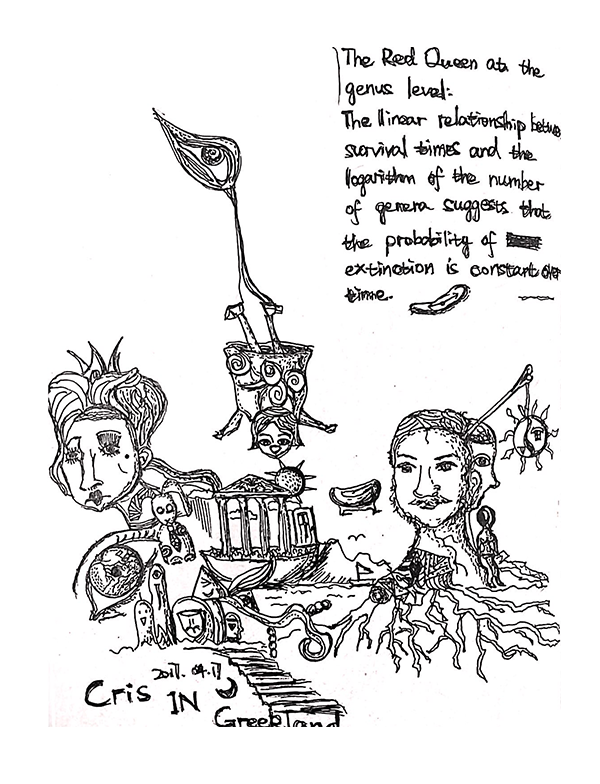 The Red Queen at the
genus level:
The linear relationship betwe
survival times and the
logarithm of the number
of genera suggests that
the probability of
extinction is constant over
time.
2017. 04.17
Cris IN
GreekLand